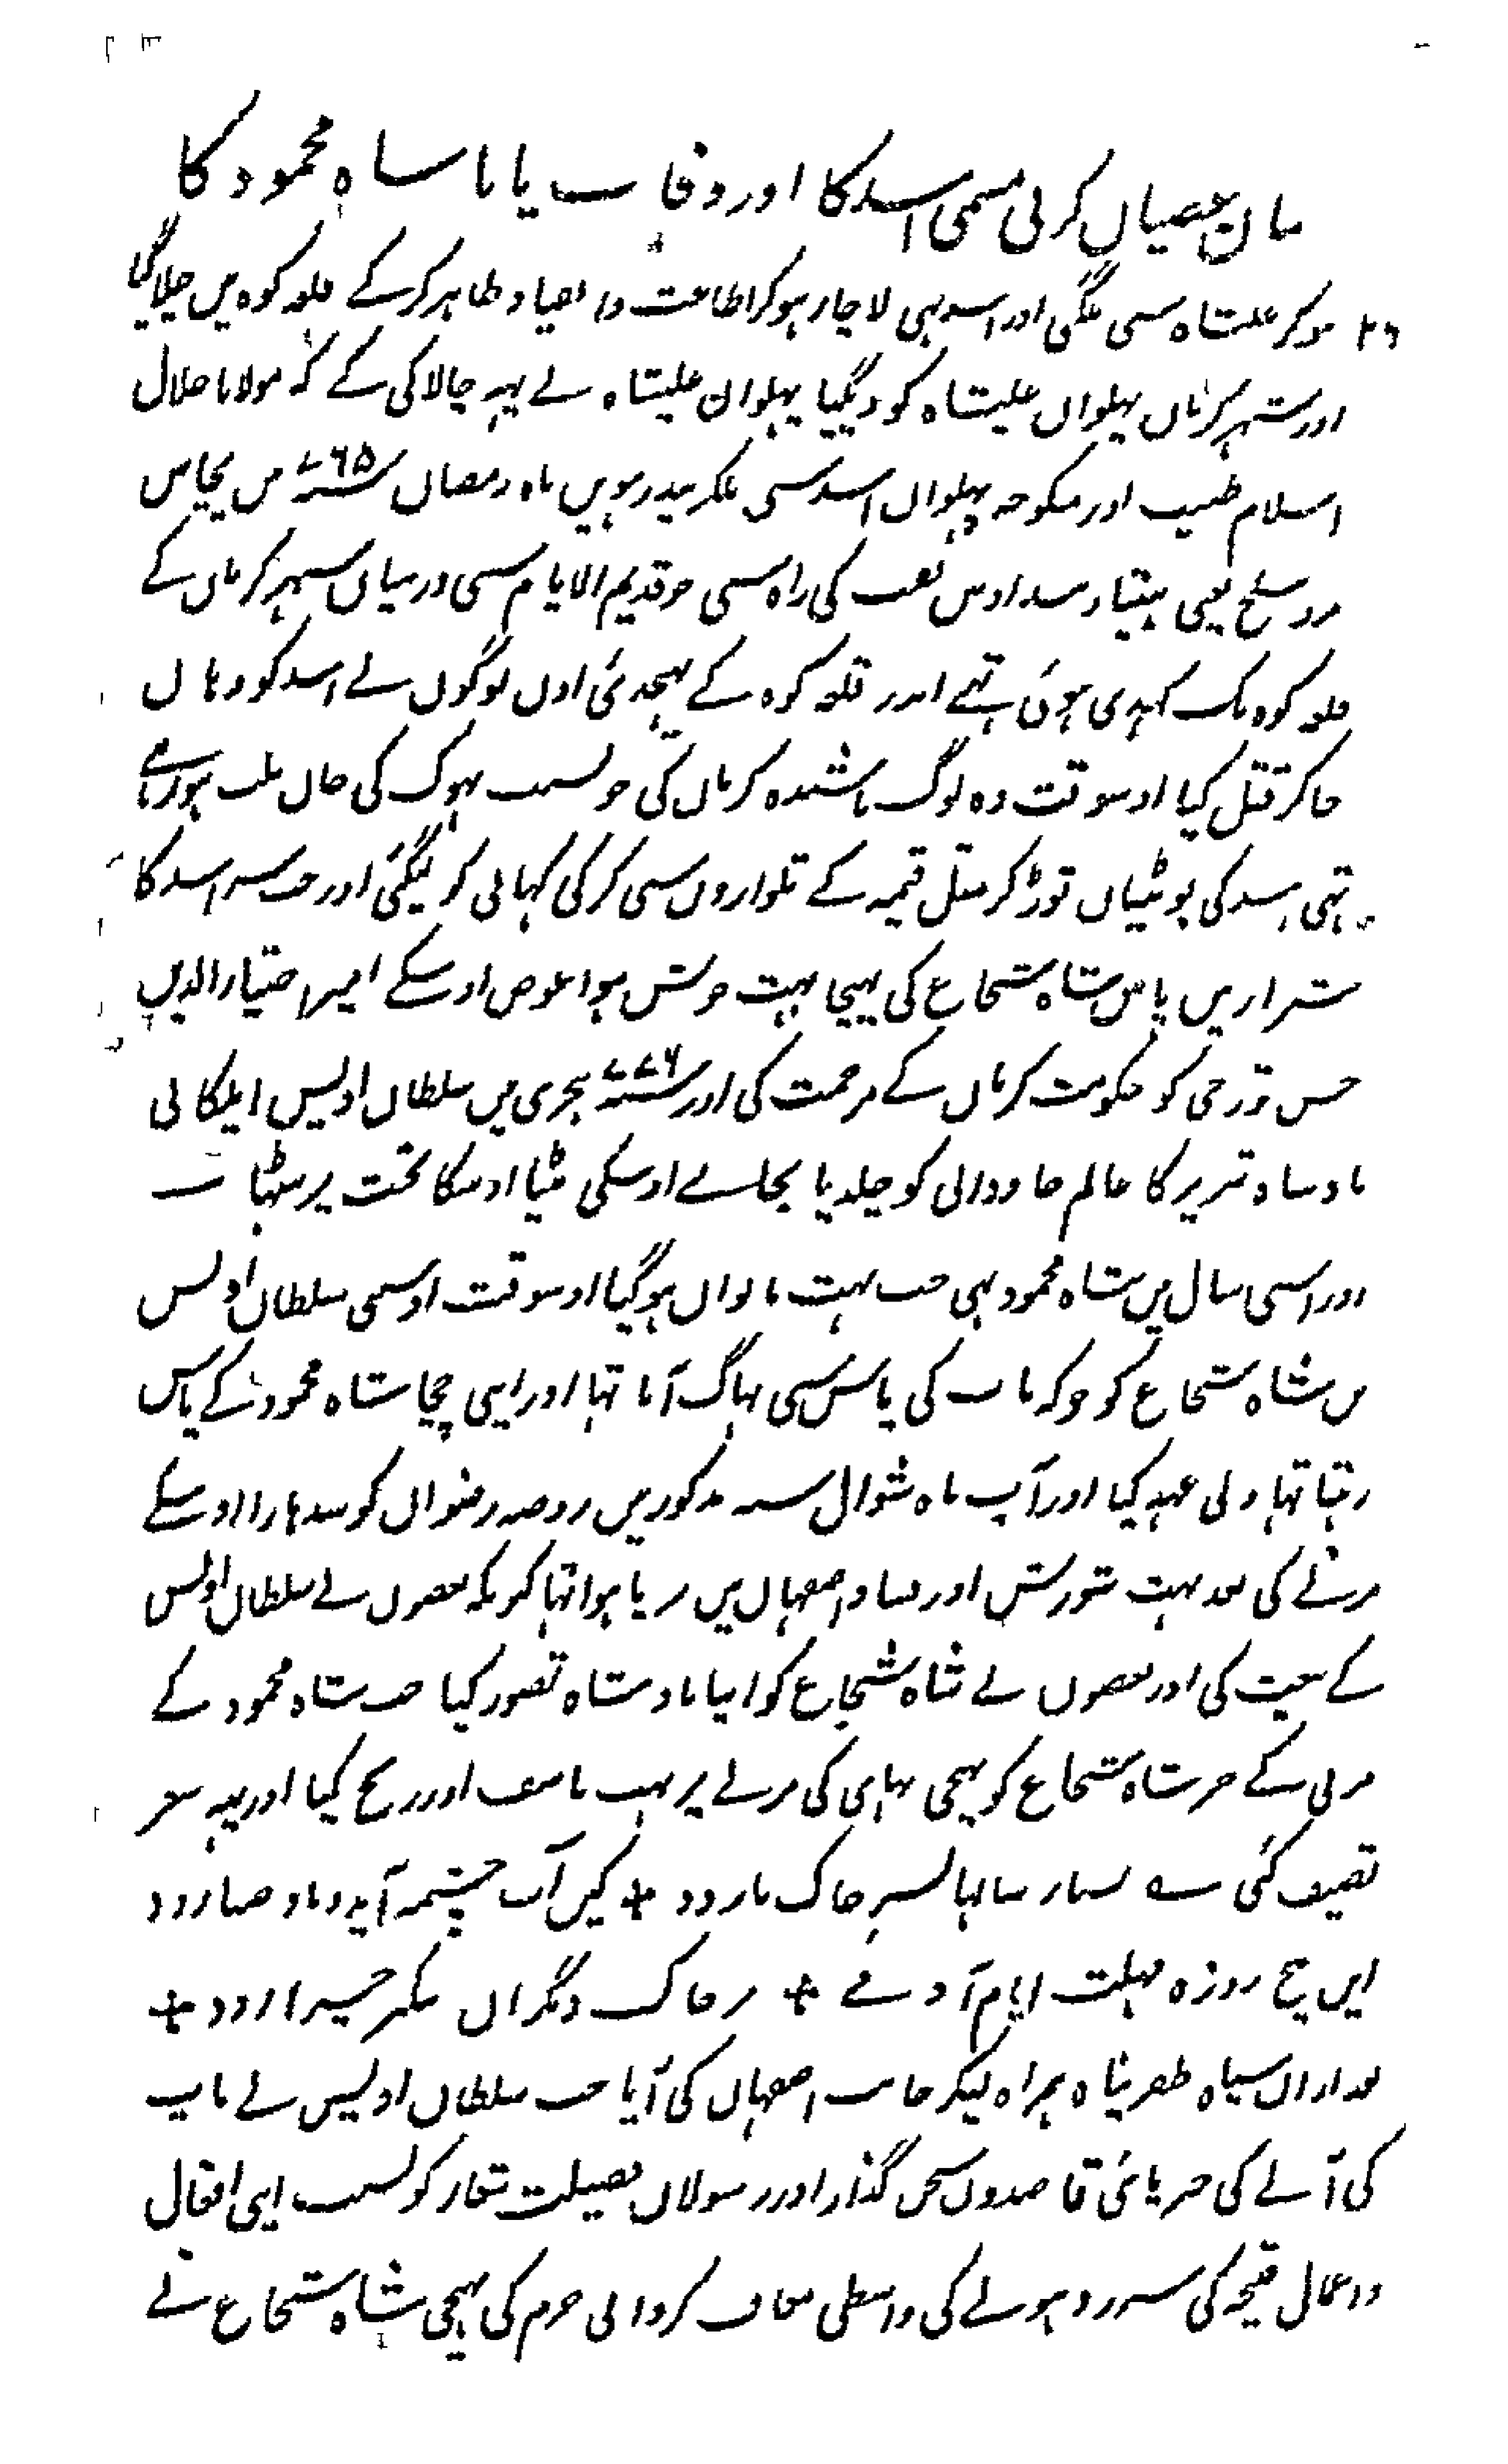 بیان عصیاں کرنی مسمی اسد کا اور وفات پانا شاہ محمود کا
ہوکر علیشاہ سی ملگی اور اسد بہی لاچار ہوکر اطاعت و انقیاد ظاہر کرکے قلعہ کوہ میں چلا گیا
اور شہر کرماں پہلواں علیشاہ کو دیگیا پہلوان علیشاہ نے یہہ چالاکی کے کہ مولانا جلال
اسلام طبیب اور منکوحہ پہلوان اسد سی ملکر پندرہویں ماہ رمضاں سنہ ۷۶۵ میں پچاس
مرد مسلح یعنی ہتیار بند اوس نقب کی راہ سی جو قدیم الایام سی درمیاں شہر کرماں کے
قلعہ کوہ تک کہدی ہوئی تہے اندر قلعہ کوہ کے بہیجدئی اون لوگوں نے اسد کو وہاں
جاکر قتل کیا اوسوقت وہ لوگ باشندہ کرماں کی جو بسبب بہوک کی جاں بلب ہورہے
تہی اسد کی بوٹیاں توڑ کر مثل قیمہ کے تلواروں سی کرکی کہانی کو لیگئی اور جب سر اسد کا
شیراز میں پاس شاہ شجاع کی پہنچا بہت خوش ہوا عوض اوسکے امیر اختیار الدیں
حسن قورچی کو حکومت کرماں کے مرحمت کی اور سنہ ۷۷۶ ہجری میں سلطاں اویس ایلکانی
بادشاہ تبریز کا عالم جاودانی کو چلدیا بجاے اوسکی بیٹا اوسکا تخت پر بیٹہا
اور اسی سال میں شاہ محمود بہی جب بہت ناتواں ہوگیا اوسوقت اوسی سلطاں اویس
بن شاہ شجاع کو جو کہ باپ کی پاس سی بہاگ آیا تہا اور اپنی چچا شاہ محمود کے پاس
رہتا تہا ولی عہد کیا اور آپ ماہ شوال سنہ مذکور میں روضہ رضواں کو سدہارا اوسکے
مرنے کی بعد بہت شورش اور فساد اصفہاں میں برپا ہوا تہا کیونکہ بعضوں نے سلطاں اویس
کے بیعت کی اور بعضوں نے شاہ شجاع کو اپنا بادشاہ تصور کیا جب شاہ محمود کے
مرنی کے خبر شاہ شجاع کو پہنچی بہائی کی مرنے پر بہت تاسف اور رنج کیا اور یہہ شعر
تصنیف کئی ؎ بسیار سالہا بسر خاک ما رود + کیں آب چشمہ آید و باد صبا رود
ایں پنج روزہ مہلت ایام آدمے + بر خاک دگراں بتکبر چرا رود +
بعد ازاں سپاہ ظفر پناہ ہمراہ لیکر جانب اصفہاں کی آیا جب سلطاں اویس نے باپ
کی آنے کی خبر پائی قاصدوں سخن گذار اور رسولاں فضیلت شعار کو بسبب اپنی افعال
و اعمال قبیحہ کی سرزد ہونے کی واسطی معاف کروانی جرم کی بہیجی شاہ شجاع نے